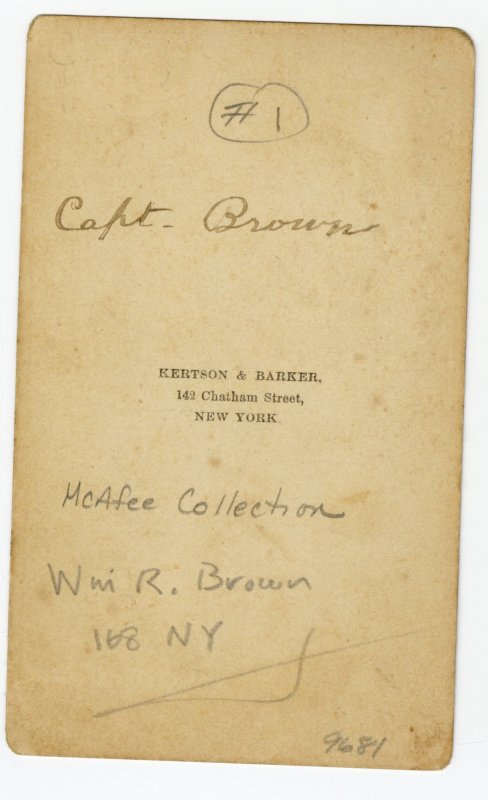 # 1
Capt- Brown
KERTSON & BARKER,
142 Chatham Street,
NEW YORK.
McAfee Collection
Wm R. Brown
168 NY
9681